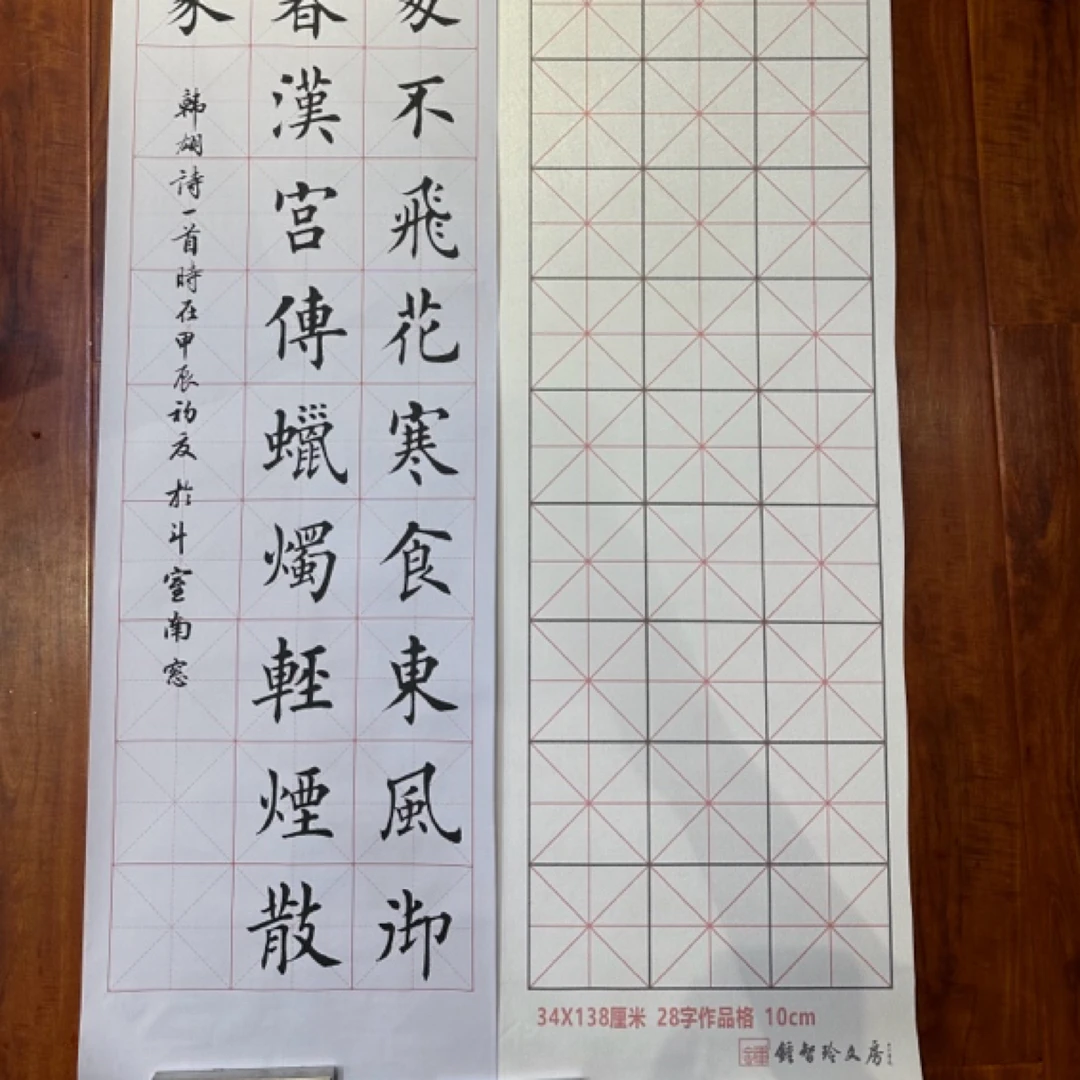 不飛花寒食東風御
漢宮傳蠟燭輕煙散
韩翃詩一首時在甲辰初夏於斗室南窓
34X138厘米 28字作品格 10cm
鍾智玲文房